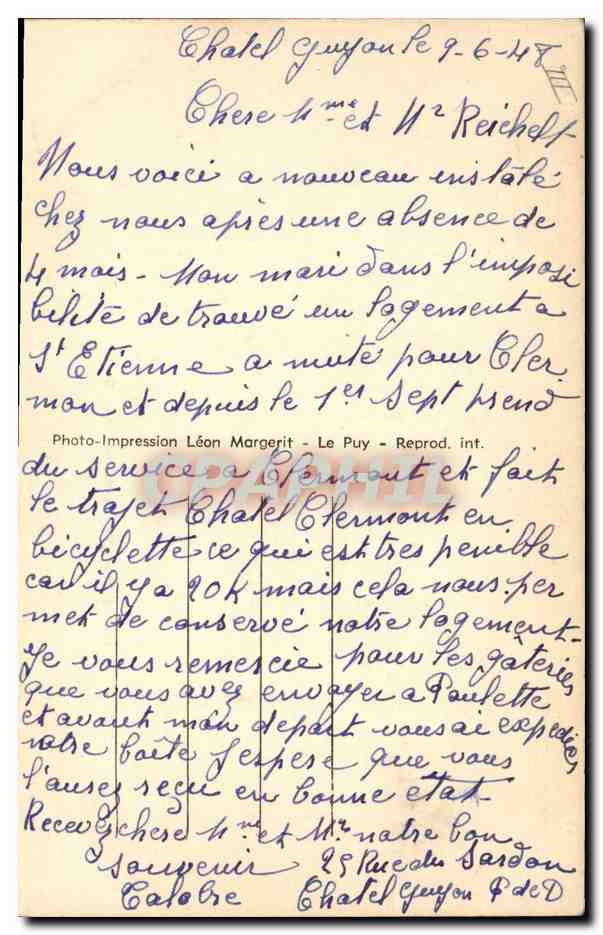 Chatel Guyon le 9-6-48
III
Chere Mme et Mr Reichelt
Nous voici a nouveau enstalé
chez nous après une absence de
4 mois - Mon mari dans l'imposi
bilité de trouvé un logement a
St Etienne a muté pour Cler
mon et depuis le 1er Sept prend
Photo-Impression Léon Margerit - Le Puy - Reprod. int.
du service a Clermont et fait
le trajet Chatel Clermont en
bicyclette ce qui est tres penible
car il y a 20K mais cela nous per
met de conservé notre logement-
Je vous remercie pour les gâteries
que vous avez envoyer a Paulette
et avant mon depart vous ai expediés
votre boîte J'espere que vous
l'aurez reçu en bonne état-
Recevez chere Mme et Mr notre bon
souvenir 25 Rue du Sardon
Chatel Guyon P de D